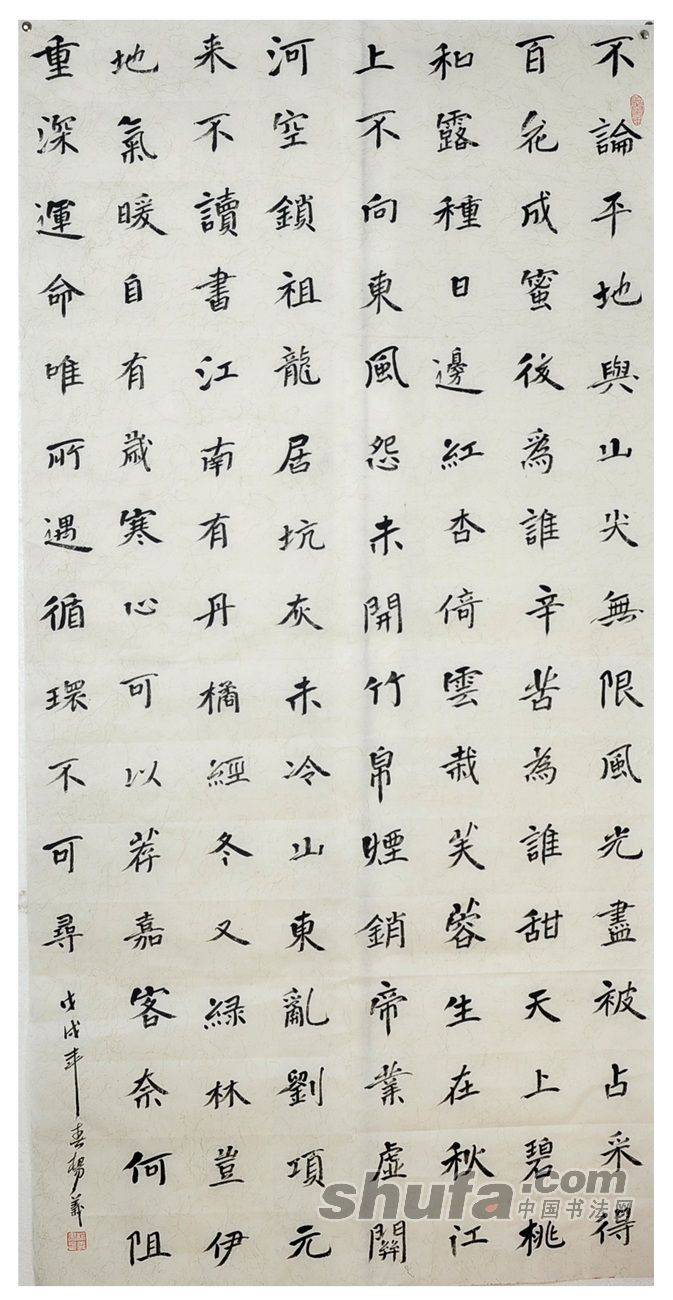 不論平地與山尖無限風光盡被占采得
百花成蜜後爲誰辛苦為誰甜天上碧桃
和露種日邊紅杏倚雲栽芙蓉生在秋江
上不向東風怨未開竹帛煙銷帝業虛關
河空鎖祖龍居坑灰未冷山東亂劉項元
来不讀書江南有丹橘經冬又緑林豈伊
地氣暖自有歲寒心可以荐嘉客奈何阻
重深運命唯所遇循環不可尋
戊戌年春楊義
shufa.com
中国书法网